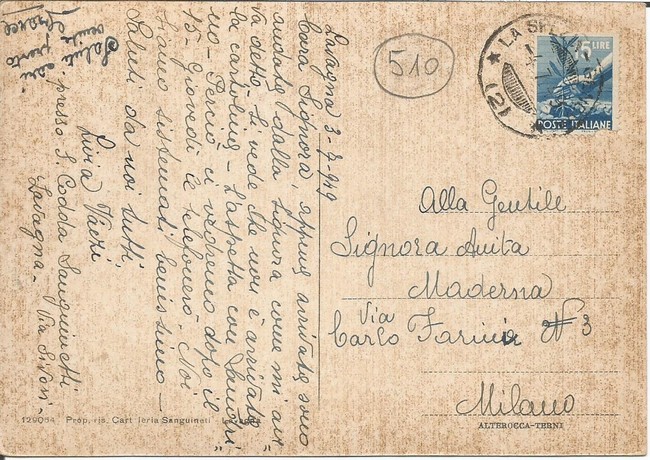 Lavagna 3-7-949
Cara Signora, appena arrivate sono
andata dalla Signora come mi ave
va detto. Si vede che non è arrivata
la cartolina - L'aspetta con Sandri
no - Perciò ci vedremo dopo il
15 - Giovedì le telefonerò - Noi
siamo sistemati benissimo -
Saluti da noi tutti
Livia
presso S. Codda Sanguineti
Lavagna - Via
Saluti cari
venite presto
510
LA SPE
(2)
5 LIRE
POSTE ITALIANE
Alla Gentile
Signora Anita
Maderna
Via
Carlo Farini N° 3
Milano
129034 Prop. ris. Cart leria Sanguineti - Lavagna
ALTEROCCA-TERNI